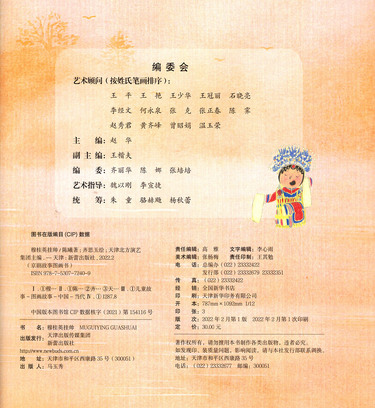 编委会
艺术顾问（按姓氏笔画排序）：
王 平 王 艳 王少华 王冠丽 石晓亮
李经文 何永泉 张 克 张正春 陈 霖
赵秀君 黄齐峰 曾昭娟 温玉荣
主 编：赵 华
副主编：王楷夫
编 委：齐丽华 陈 娜 张培培
艺术指导：魏以刚 李宜捷
统 筹：朱 童 骆赫飚 杨秋蕾
图书在版编目（CIP）数据
穆桂英挂帅 / 陈曦著；齐悠玉绘；天津北方演艺
集团主编. -- 天津：新蕾出版社，2022.2
（京韵故事图画书）
ISBN 978-7-5307-7240-9
中国版本图书馆 CIP 数据核字（2021）第 154116 号
书 名：穆桂英挂帅 MUGUIYING GUASHUAI
出版发行：天津出版传媒集团
新蕾出版社
http://www.newbuds.com.cn
地 址：天津市和平区西康路 35 号（300051）
出 版 人：马玉秀
责任编辑：高 雅 文字编辑：李心雨
美术编辑：张杨梅 责任印制：王其勉
电 话：总编办（022）23332422
发行部（022）23332679 23332351
传 真：（022）23332422
经 销：全国新华书店
印 刷：天津新华印务有限公司
开 本：787mm×1092mm 1/12
印 张：3
版 次：2022 年 2 月第 1 版 2022 年 2 月第 1 次印刷
定 价：30.00 元
著作权所有，请勿擅用本书制作各类出版物，违者必究。
如发现印、装质量问题，影响阅读，请与本社发行部联系调换。
地址：天津市和平区西康路 35 号
电话：（022）23332677 邮编：300051